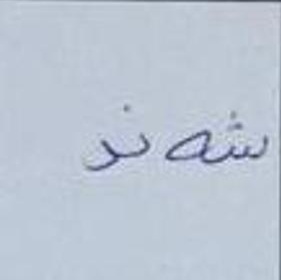 شه ند